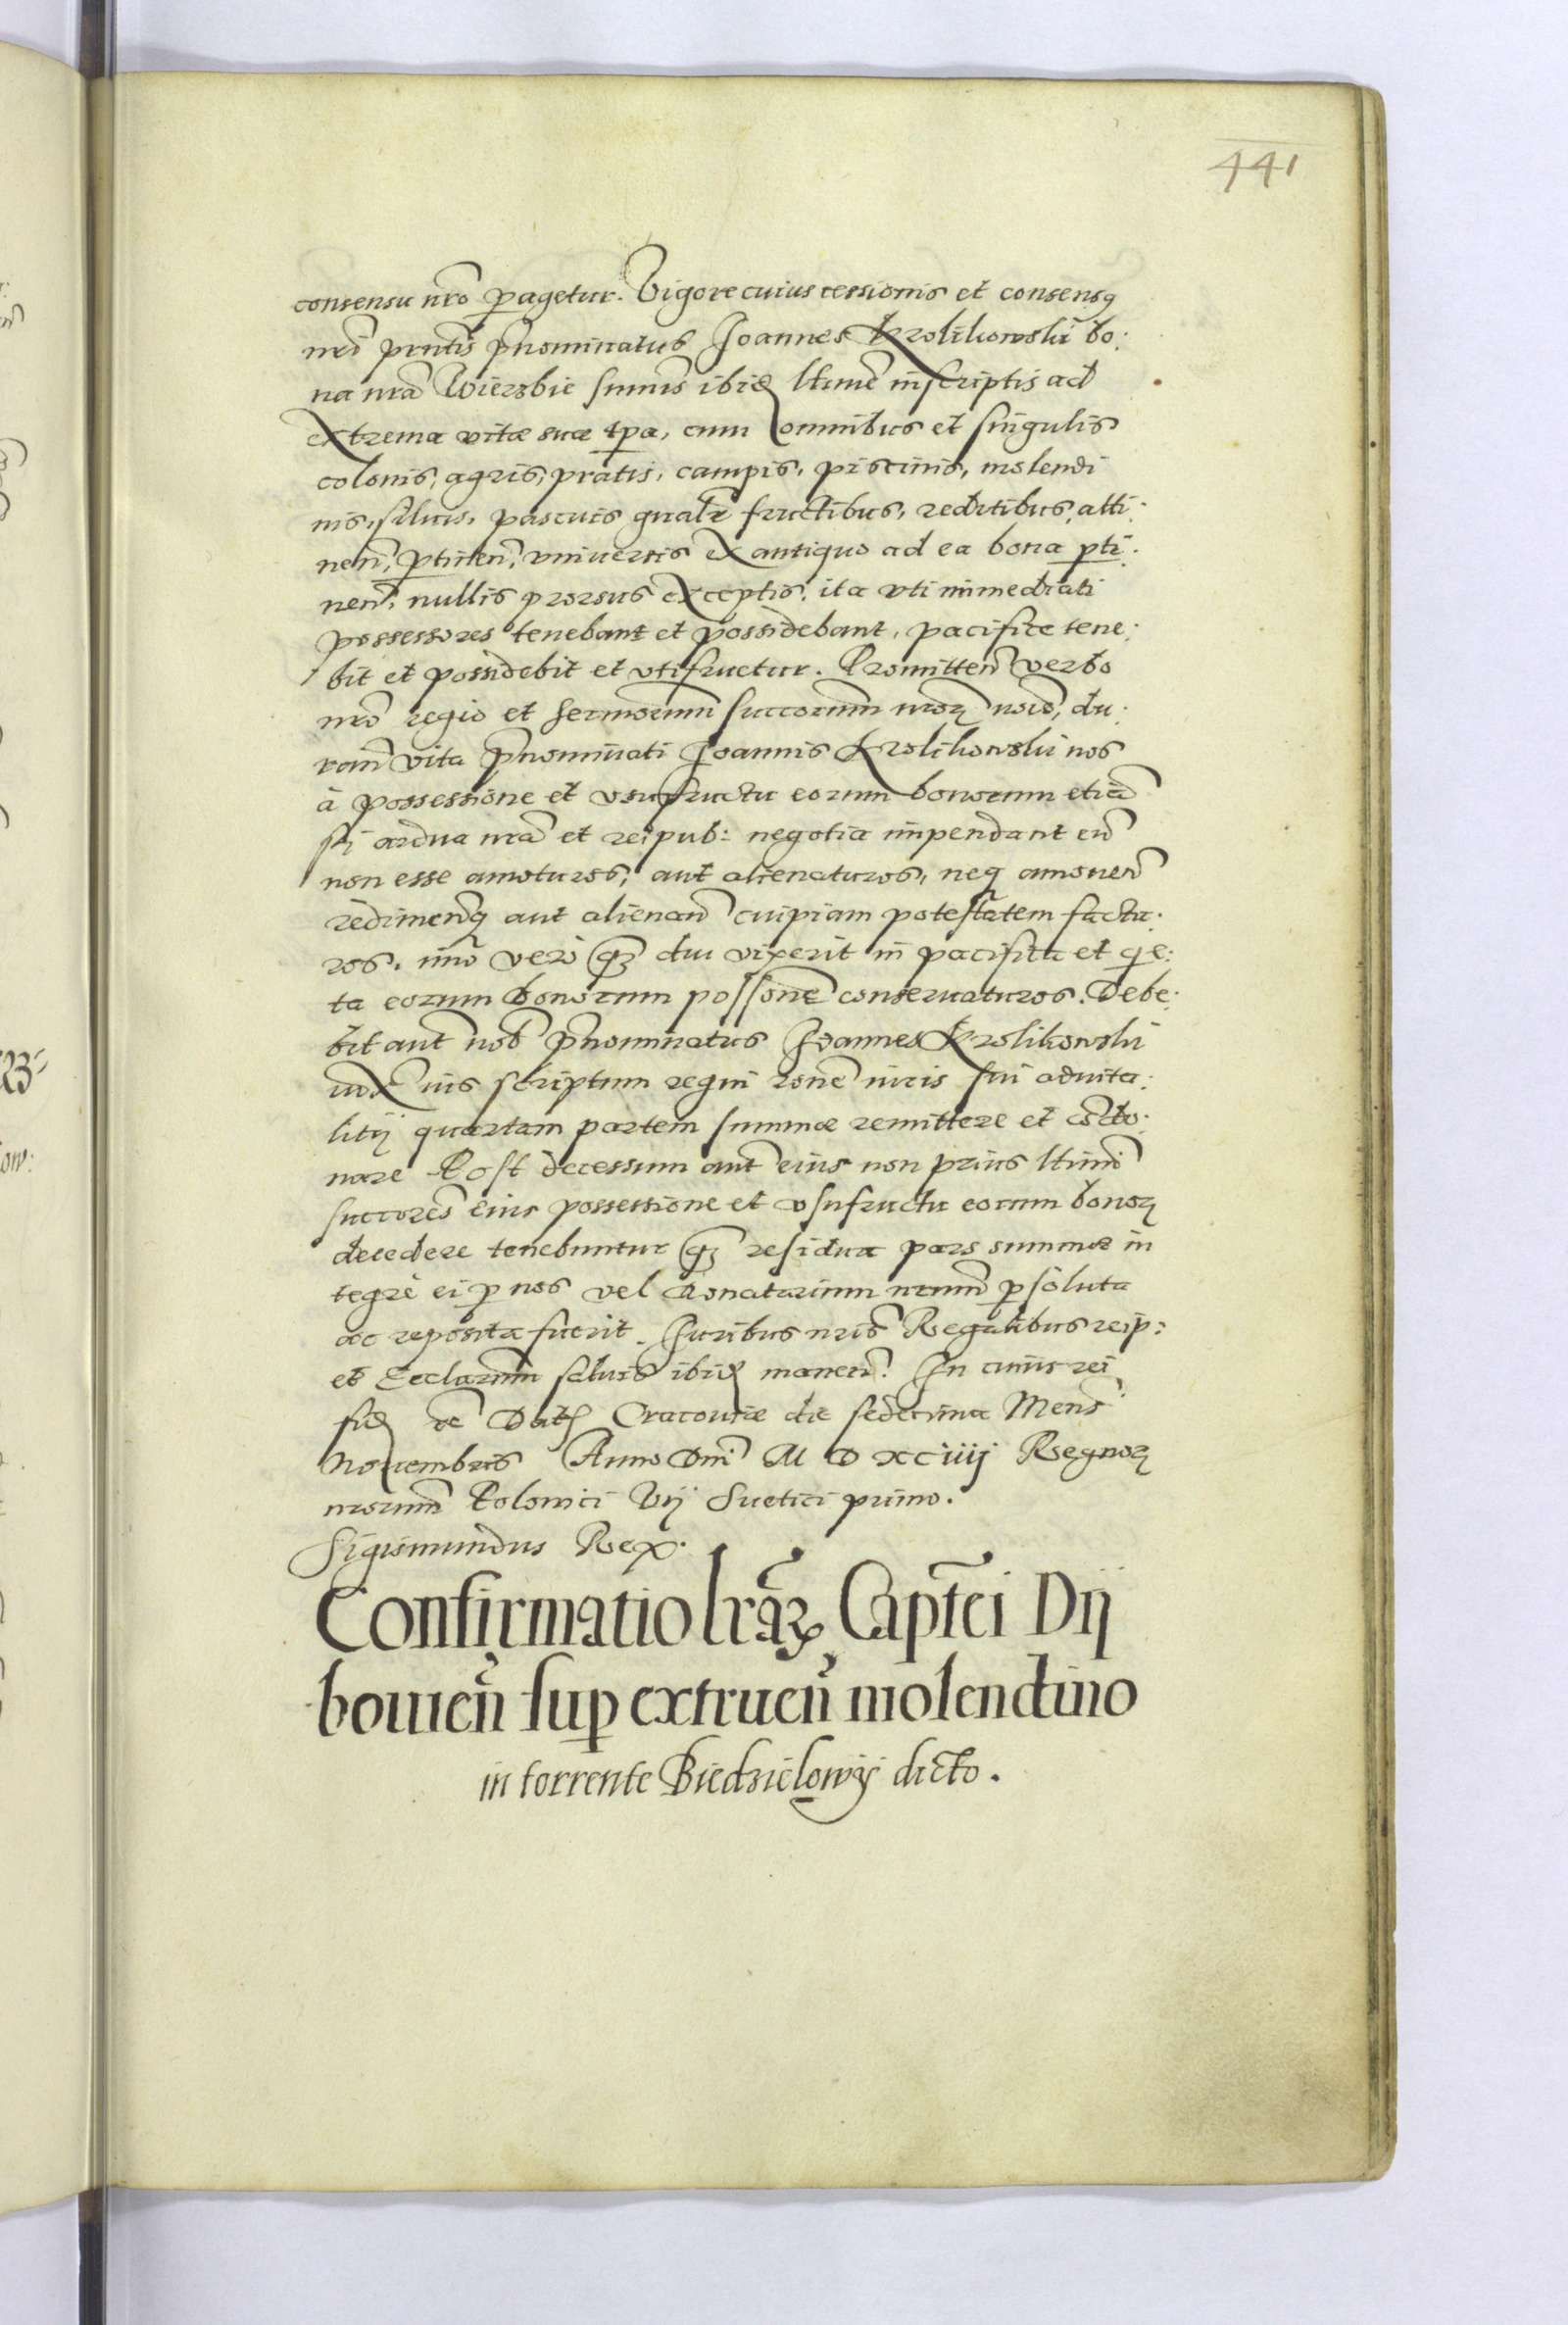 441
consensu nr̃o ꝑagetur. Vigore cuius cessionis et consensꝯ
nr̃i pr̃ntis p̃nominatus Joannes Krolikowski bo:
na nr̃a Wierzbie sum̃is ibid̃ ltime inscriptis ad
extrema vitæ suæ tp̃a, cum omnibus et singulis
colonis, agris, pratis, campis, piscinis, molendi
nis, siluis, pascuis gñalir̃ fructibus, reditibus, atti:
nen̄, ꝑtinen̄, vniuersis ex antiquo ad ea bona ꝑti:
nen̄, nullis prorsus exceptis, ita vti immediati
possessores tenebant et possidebant, pacifice tene:
bit et possidebit et vtifructur. Promitten̄ verbo
nr̃o regio et serm̃orum succorum nr̃oꝝ noiẽ, du:
ran̄ vita p̃nominati Joannis Krolikowski nos
à possessione et vsufructu eorum bonorum etiã
si ardua nr̃a et reipub: negotia impendant eũ
non esse amoturos, aut alienaturos, neq̃ amouen̄
redimenq̃ aut alienan̄ cuipiam potestatem factu:
ros, imò verò qꝫ diu vixerit in pacifica et qie:
ta eorum bonorum possone conseruaturos. Debe:
bit aut nob̃ p̃nominatus Joannes Krolikowski
iuris scriptum regni rone iuris sui aduita:
litij quartam partem summæ remittere et cõdo:
nare Post decessum aut eius non prius ltimi
succores eius possessione et vsufructu eorum bonoꝝ
decedere tenebuntur qꝫ residua pars summæ in
tegrè ei ꝑ nos vel donatarium nrum ꝑsoluta
ac reposita fuerit. Juribus nris Regalibus reip:
et Ecclarum saluis ibid̃ manen̄. In cuius rei
fid̃ Dat̃ Cracouiæ die sedecima Mens̃
Nouembris Anno Dni M D XCIIII Regnoꝝ
nrorum Polonici Vij Suetici primo.
Sigismundus Rex.
Confirmatio lr̃aꝝ Captẽi Dij
bouien̄ suꝑ extruen̄ molendino
in torrente Biedzielowÿ dicto.